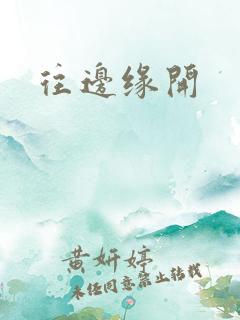 往邊缘開
黄妍婷
未经同意禁止转载